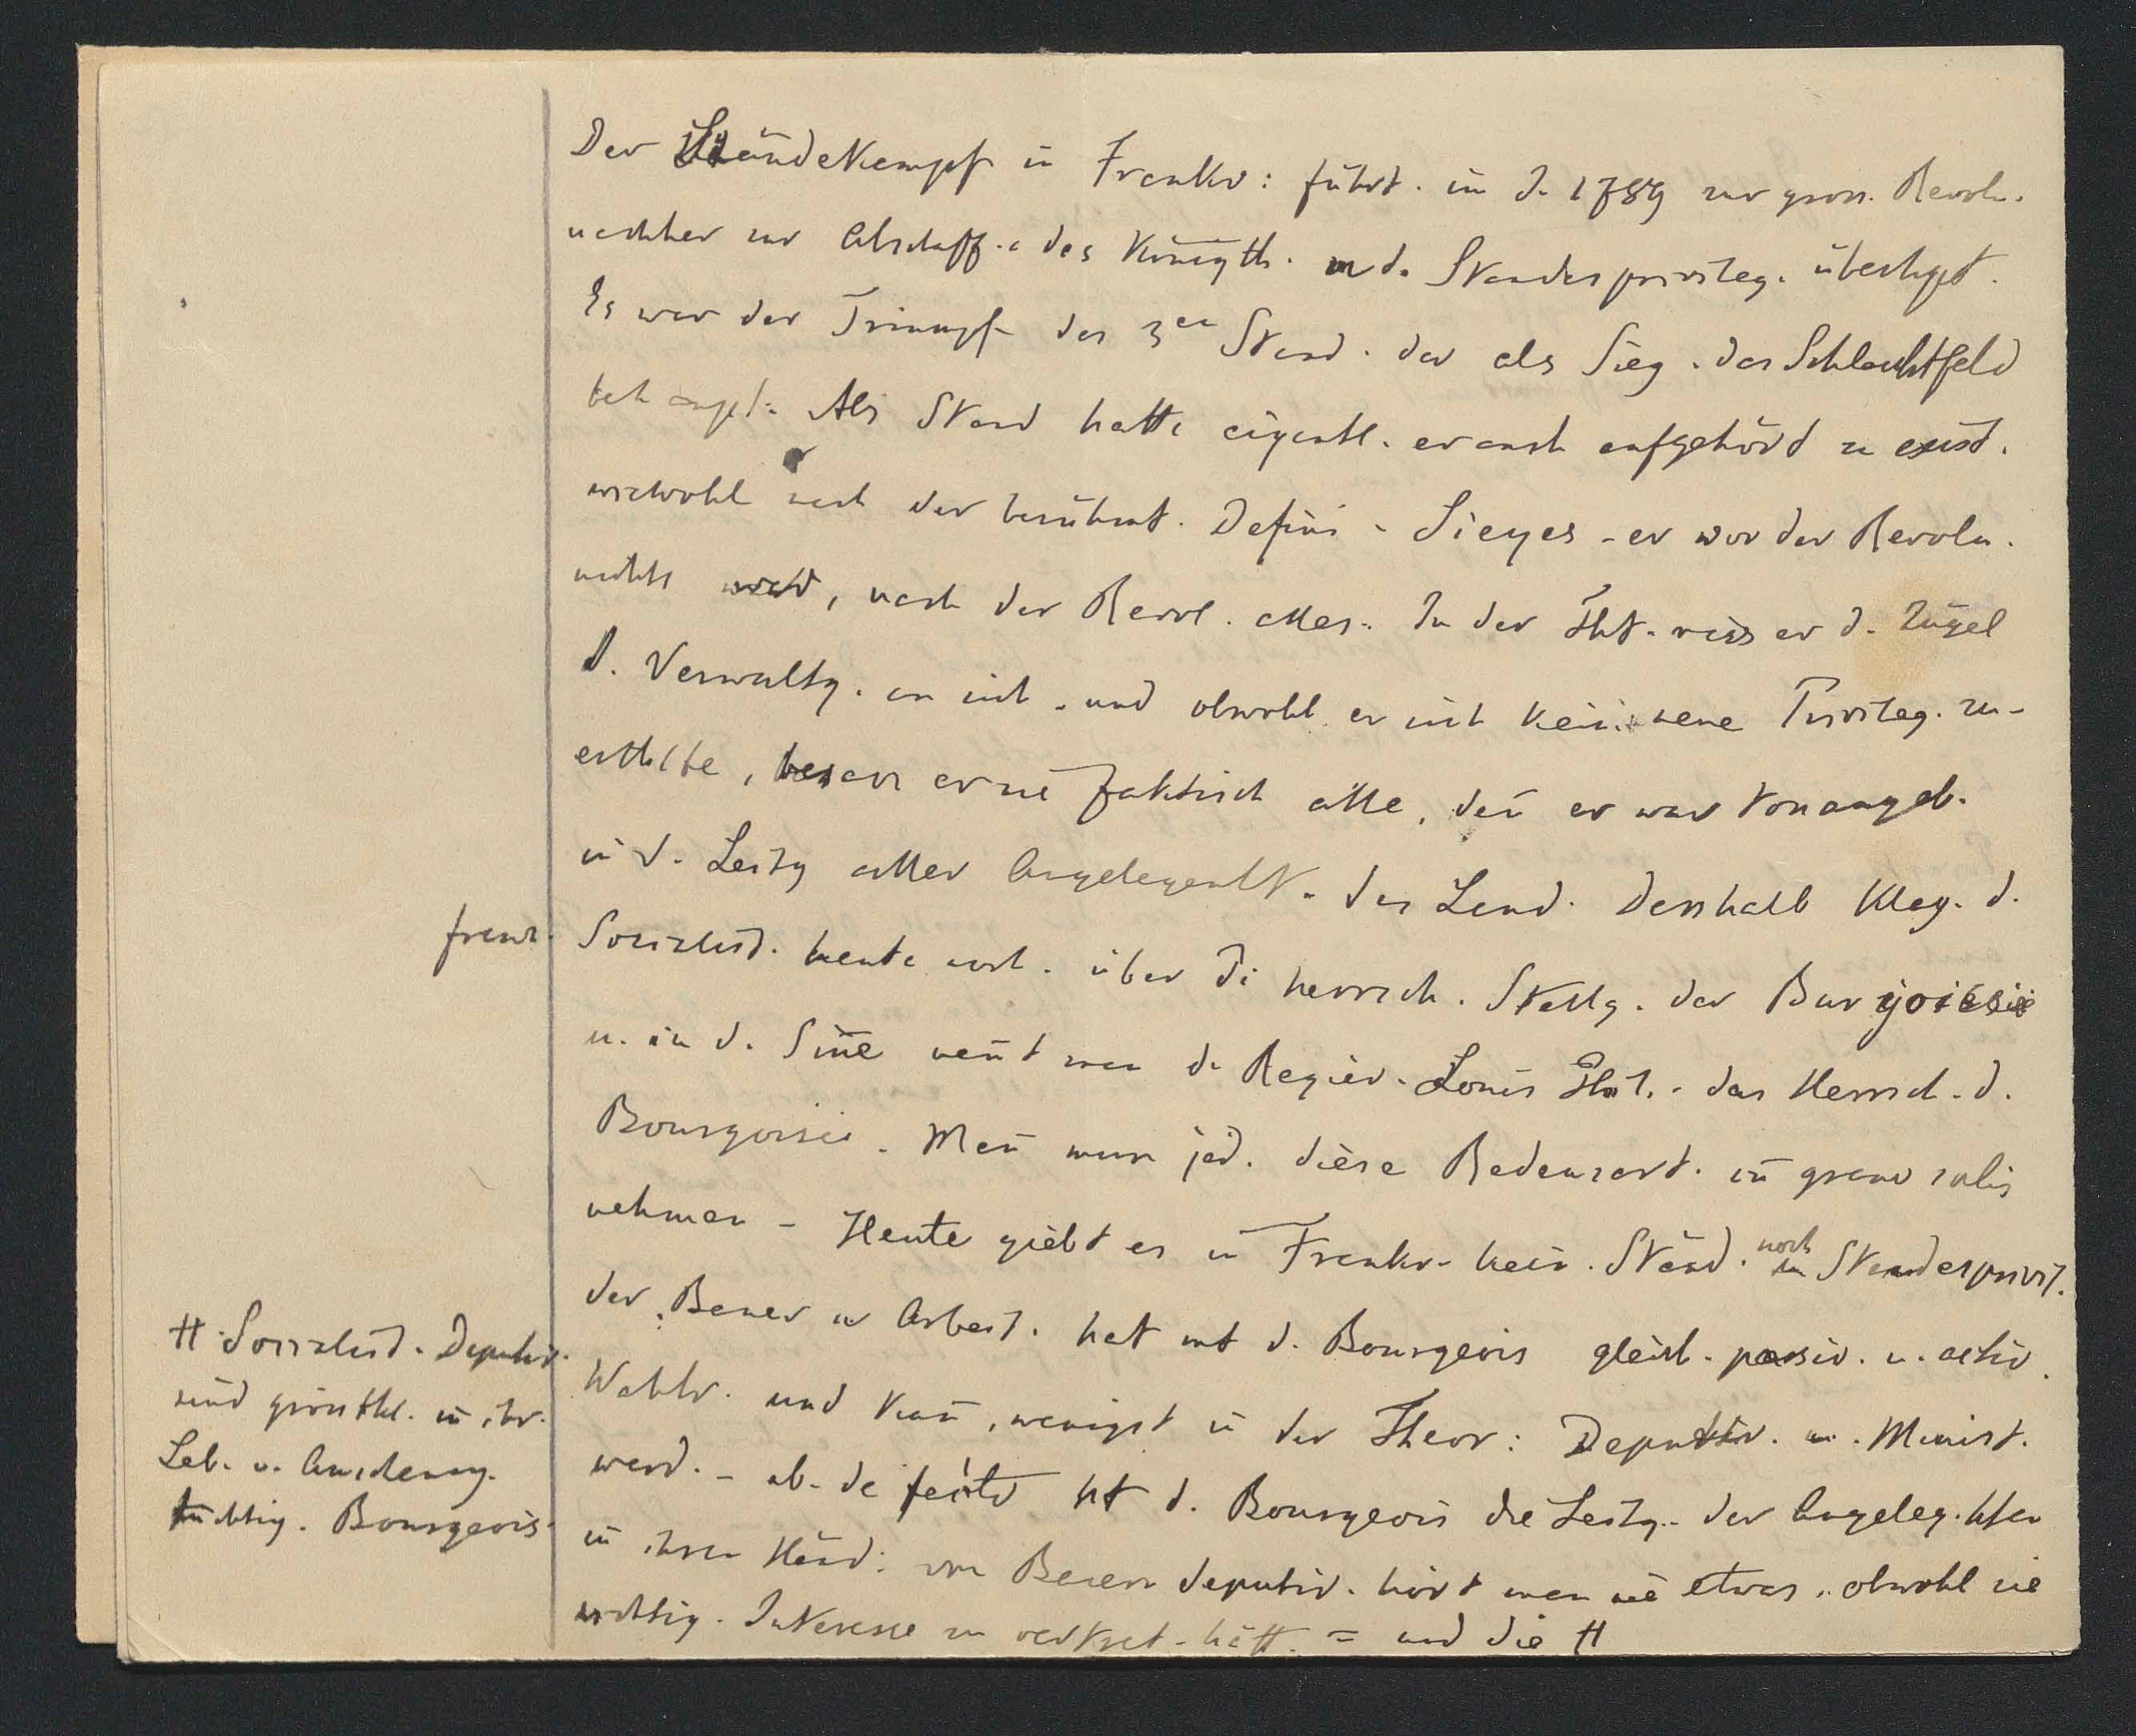 Der Ständekampf in Frankr: führt. im J. 1789 zur gross. Revolu.
nachher zur Abschaff. des Königth. u d. Standesprivileg. überhpt.
Es war der Triumpf des 3en Stand. der als Sieg. das Schlachtfeld
behaupt. Als Stand hatte eigentl. er auch aufgehört zu exist.
wiewohl nach der berühmt. Defini - Sieyes - er vor der Revolu.
nichts, nach der Revol. alles. In der That. riss er d. Zügel
d. Verwaltg. an sich - und obwohl er sich kein. neue Privileg. zu-
ertheilte, besass er sie faktisch alle, deñ er war tonangeb.
in d. Leitg aller Angelegenht. des Land. Desshalb klag. d.
franz. Sozialist. heute noch. über di herrsch. Stellg. der Burgoisie
u. in d. Siñe neñt man d. Regier. Louis Phil. - das Herrsch. d.
Bourgoisie. Mañ muss jed. diese Redensart. cum grano salis
nehmen - Heute giebt es in Frankr. kein. Ständ. noch Standesprivil.
der Bauer u Arbeit. hat mit d. Bourgeois gleich. passiv. u. activ.
Wahlr. und kañ, wenigst in der Theor: Deputir. u. Minist.
werd. - ab. de facto ht d. Bourgeois die Leitg. der Angeleg.htn
in ihren Händ: von Bauern deputir. hört man nie etwas, obwohl sie
wichtig. Interesse zu vertret. hätt. = und die #
# Sozialist. Deputir.
sind grösstthl. in ihr.
Leb. u. Anschauug.
tüchtig. Bourgeois